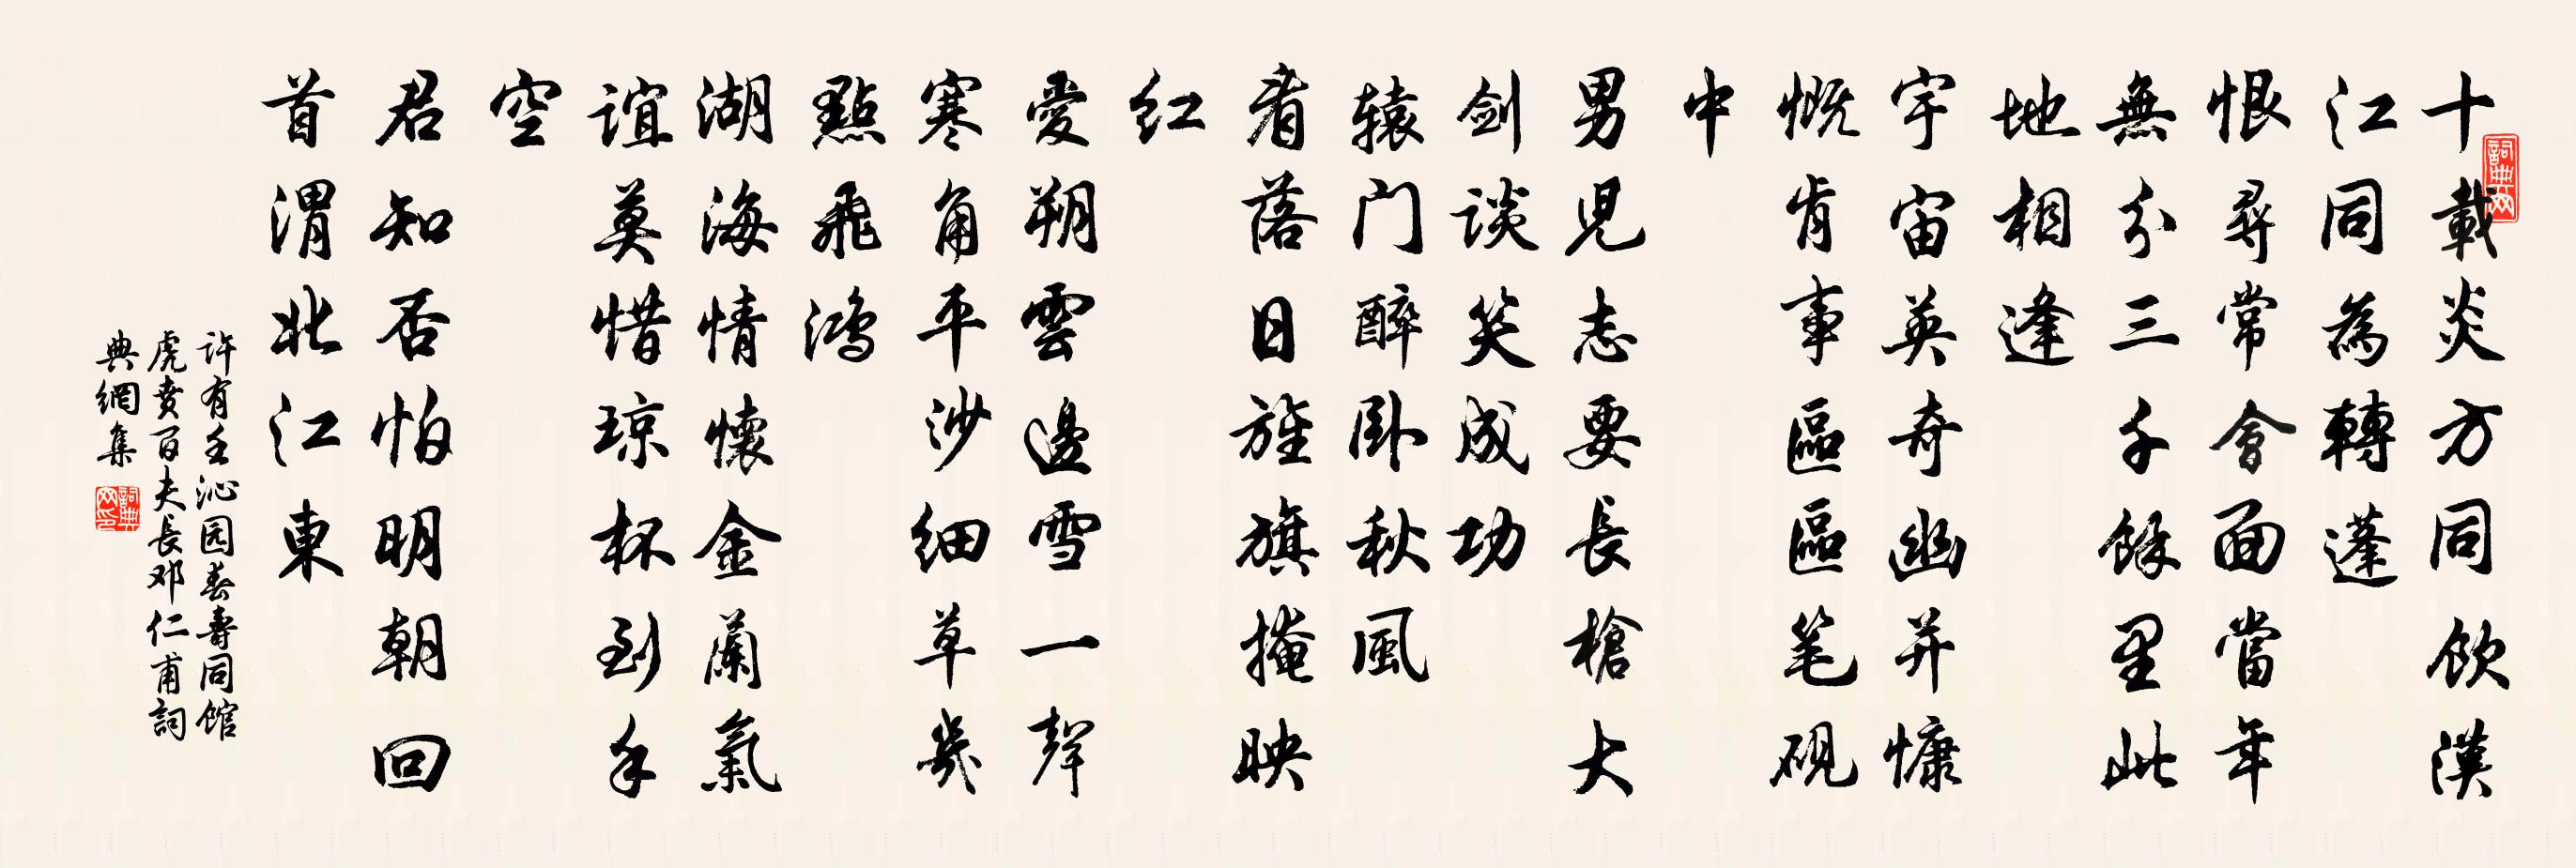 十載炎方同飲漢
江同為轉蓬
恨尋常會面當年
無分三千餘里此
地相逢
宇宙英奇幽并慷
慨肯事區區笔砚
中
男児志要長槍大
剑谈笑成功
辕门醉卧秋風
看落日旌旗掩映
红
愛朔雲邊雪一聲
寒角平沙細草幾
點飛鴻
湖海情懷金蘭氣
誼莫惜琼杯到手
空
君知否怕明朝回
首渭北江東
许有壬沁园春壽同馆
虎贲百夫長邓仁甫詞
典網集
詞典网
詞典网印